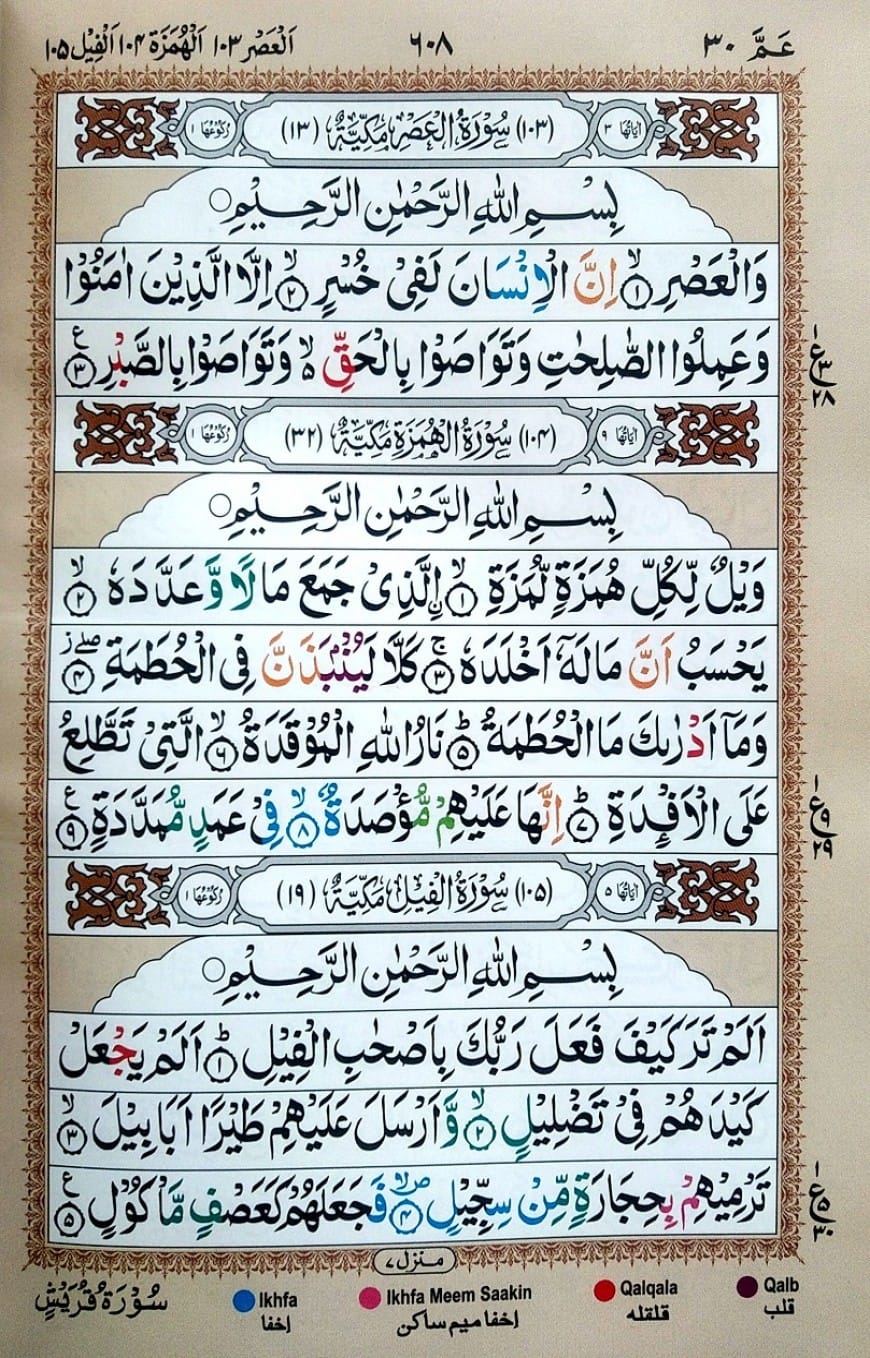 عَمَّ ٣٠ ٦٠٨ اَلْعَصْر ١٠٣ اَلْهُمَزَة ١٠٤ اَلْفِيْل ١٠٥
اٰيَاتُهَا ٣ (١٠٣) سُوْرَةُ الْعَصْرِ مَكِّيَّةٌ (١٣) رُكُوْعُهَا ١
بِسْمِ اللّٰهِ الرَّحْمٰنِ الرَّحِيْمِ
وَالْعَصْرِ ۙ‏﴿١﴾ اِنَّ الْاِنْسَانَ لَفِىْ خُسْرٍ ۙ‏﴿٢﴾ اِلَّا الَّذِيْنَ اٰمَنُوْا
وَعَمِلُوا الصّٰلِحٰتِ وَتَوَاصَوْا بِالْحَقِّ ۙ وَتَوَاصَوْا بِالصَّبْرِ ﴿٣﴾ ع
ع ٣ ٢٨
اٰيَاتُهَا ٩ (١٠٤) سُوْرَةُ الْهُمَزَةِ مَكِّيَّةٌ (٣٢) رُكُوْعُهَا ١
بِسْمِ اللّٰهِ الرَّحْمٰنِ الرَّحِيْمِ
وَيْلٌ لِّكُلِّ هُمَزَةٍ لُّمَزَةٍ ۙ‏﴿١﴾ اۨلَّذِىْ جَمَعَ مَالًا وَّعَدَّدَهٗ ۙ‏﴿٢﴾
يَحْسَبُ اَنَّ مَالَهٗۤ اَخْلَدَهٗ ۚ‏﴿٣﴾ كَلَّا لَيُنْۢبَذَنَّ فِى الْحُطَمَةِ ۖ ز ﴿٤﴾
وَمَاۤ اَدْرٰىكَ مَا الْحُطَمَةُ ؕ‏﴿٥﴾ نَارُ اللّٰهِ الْمُوْقَدَةُ ۙ‏﴿٦﴾ الَّتِىْ تَطَّلِعُ
عَلَى الْاَفْـِٕدَةِ ؕ‏﴿٧﴾ اِنَّهَا عَلَيْهِمْ مُّؤْصَدَةٌ ۙ‏﴿٨﴾ فِىْ عَمَدٍ مُّمَدَّدَةٍ ﴿٩﴾ ع
ع ٩ ٢٩
اٰيَاتُهَا ٥ (١٠٥) سُوْرَةُ الْفِيْلِ مَكِّيَّةٌ (١٩) رُكُوْعُهَا ١
بِسْمِ اللّٰهِ الرَّحْمٰنِ الرَّحِيْمِ
اَلَمْ تَرَ كَيْفَ فَعَلَ رَبُّكَ بِاَصْحٰبِ الْفِيْلِ ؕ‏﴿١﴾ اَلَمْ يَجْعَلْ
كَيْدَهُمْ فِىْ تَضْلِيْلٍ ۙ‏﴿٢﴾ وَّاَرْسَلَ عَلَيْهِمْ طَيْرًا اَبَابِيْلَ ۙ‏﴿٣﴾
تَرْمِيْهِمْ بِحِجَارَةٍ مِّنْ سِجِّيْلٍ ۙ ص ﴿٤﴾ فَجَعَلَهُمْ كَعَصْفٍ مَّاْكُوْلٍ ﴿٥﴾ ع
ع ٥ ٣٠
منزل ٧
سُوْرَةُ قُرَيْشٍ Ikhfa Ikhfa Meem Saakin Qalqala Qalb
اخفا اخفا میم ساکن قلقله قلب